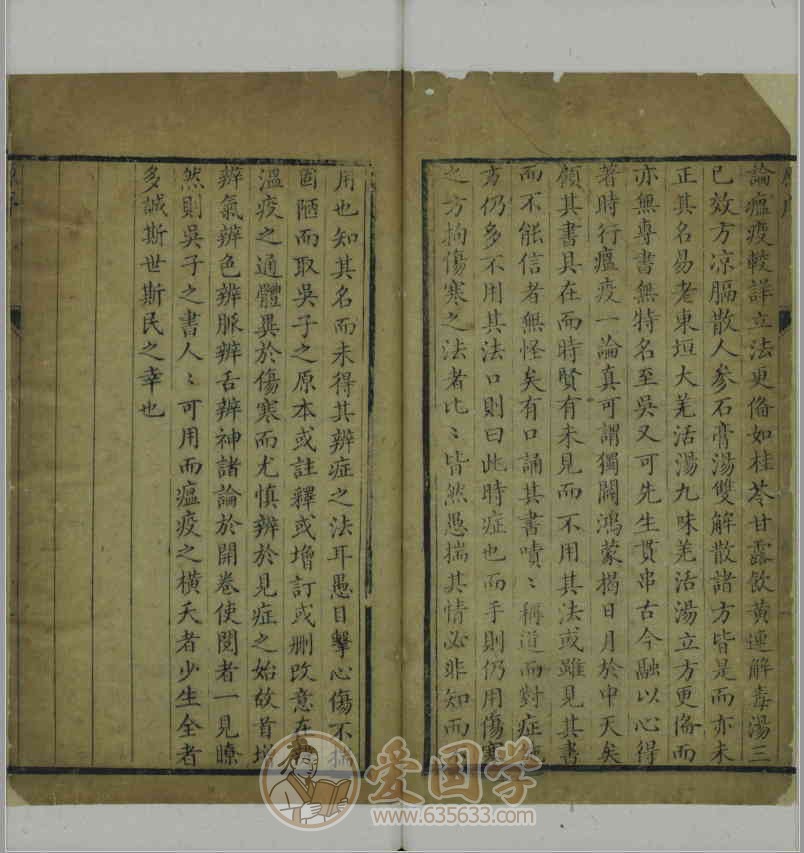 論瘟疫較詳立法更俻如桂苓甘露飲黄連解毒湯三
已效方凉膈散人參石膏湯雙解散諸方皆是而亦未
正其名易老東垣大羌活湯九味羌活湯立方更俻而
亦無專書無特名至吳又可先生貫串古今融以心得
著時行瘟疫一論真可謂獨闢鴻蒙揭日月於中天矣
顧其書具在而時賢有未見而不用其法或雖見其書
而不能信者無怪矣有口誦其書嘖〻稱道而對症
方仍多不用其法口則曰此時症也而手則仍用傷寒
之方拘傷寒之法者比〻皆然愚揣其情必非知而
用也知其名而未得其辨症之法耳愚目擊心傷不揣
固陋而取吳子之原本或註釋或增訂或刪改意在
溫疫之通體異於傷寒而尤慎辨於見症之始故首增
辨氣辨色辨脈辨舌辨神諸論於開卷使閱者一見瞭
然則吳子之書人〻可用而瘟疫之橫夭者少生全者
多誠斯世斯民之幸也
爱国学
www.635633.com